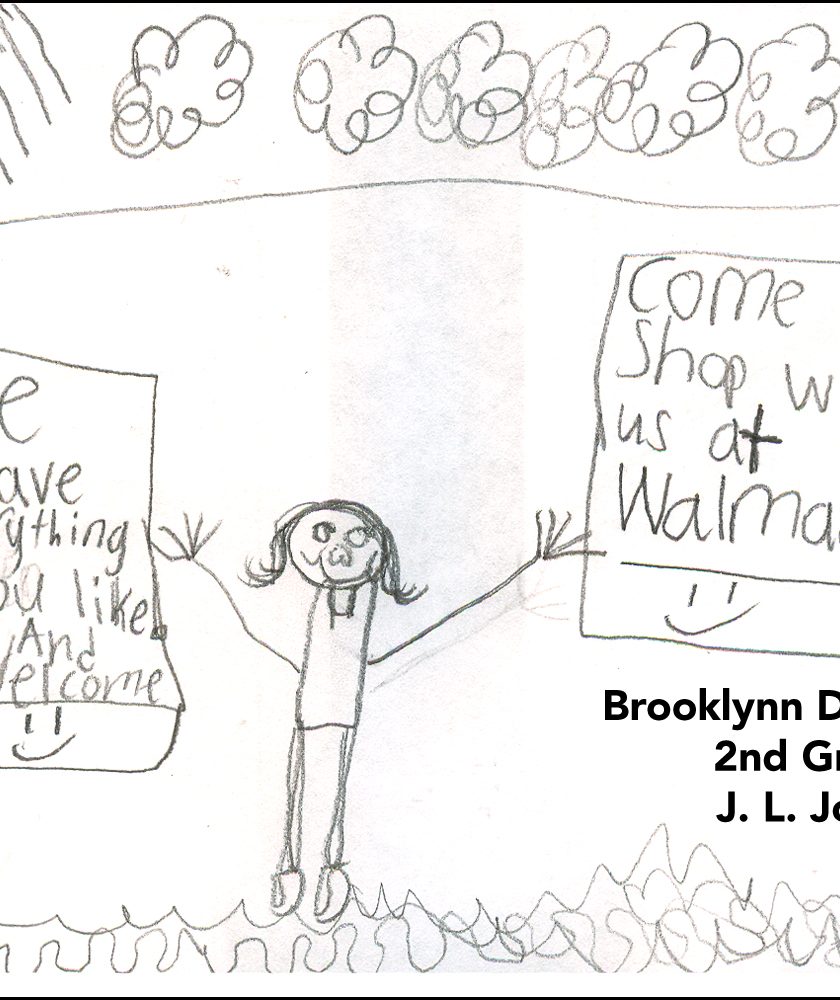 e
ave
rything
ou like
And
welcome
Come
Shop w
us at
Walma
Brooklynn D
2nd Gr
J. L. Jo